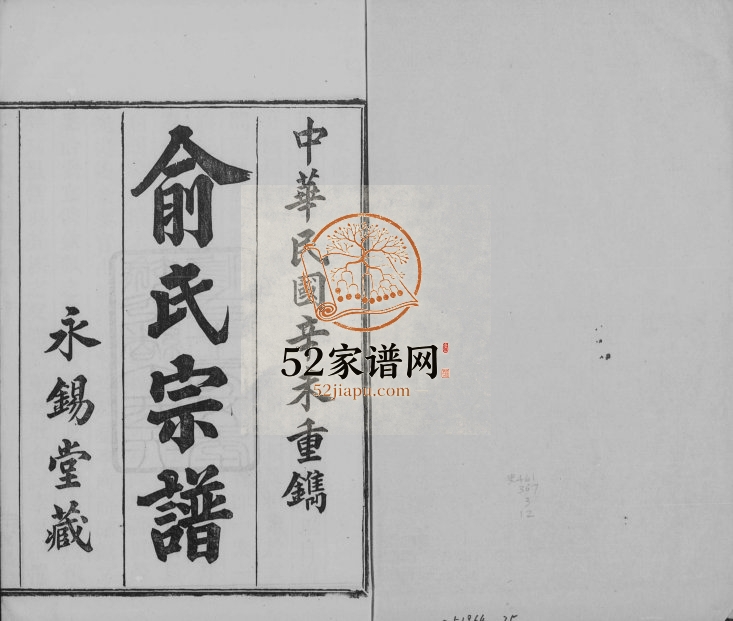 中華民國辛未重鐫
俞氏宗譜
永錫堂藏
52家谱网
52jiapu.com
367
3
12